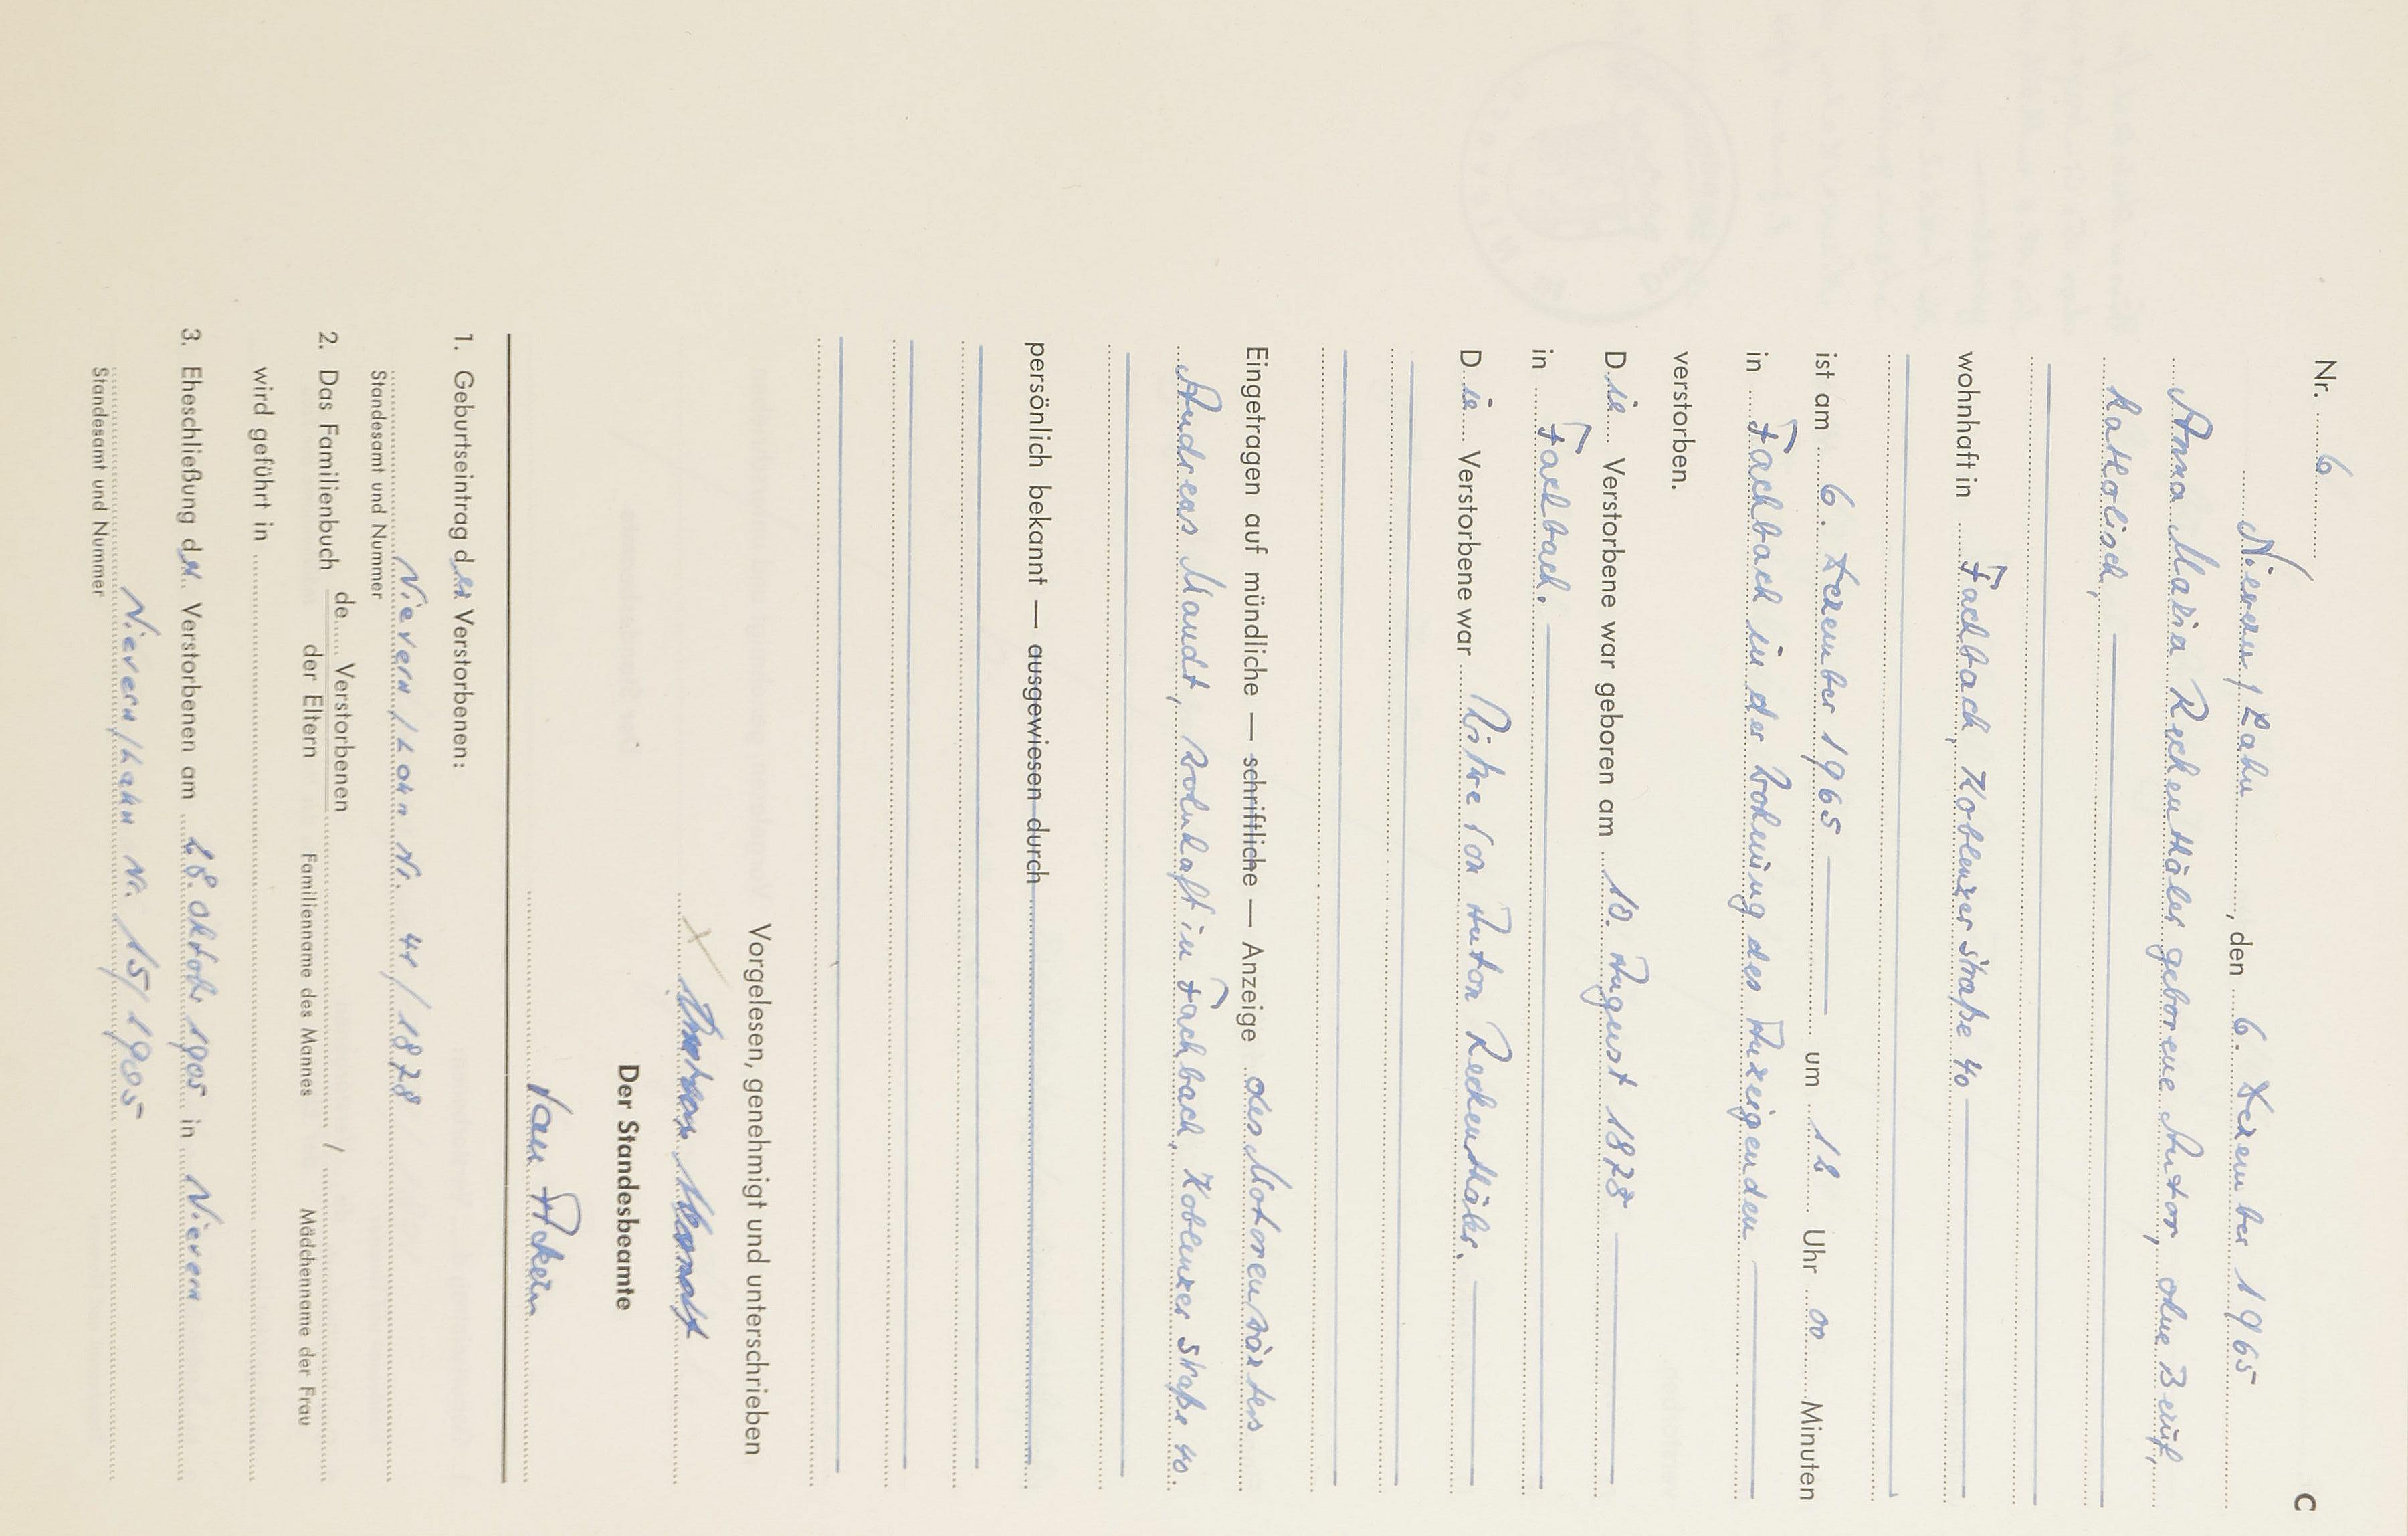 C
Nr. 6
Nievern/Lahn, den 6. Dezember 1965
Anna Maria Reckenthäler geborene Anton, ohne Beruf,
katholisch,
wohnhaft in Fachbach, Koblenzer Straße 40
ist am 6. Dezember 1965 um 12 Uhr 00 Minuten
in Fachbach in der Wohnung des Anzeigenden
verstorben.
Die Verstorbene war geboren am 10. August 1878
in Fachbach.
Die Verstorbene war Witwe von Anton Reckenthäler.
Eingetragen auf mündliche — schriftliche — Anzeige des Motorenwärters
Andreas Mandt, wohnhaft in Fachbach, Koblenzer Straße 40.
persönlich bekannt — ausgewiesen durch
Vorgelesen, genehmigt und unterschrieben
Andreas Mandt
Der Standesbeamte
1. Geburtseintrag der Verstorbenen:
Nievern/Lahn Nr. 41/1878
Standesamt und Nummer
2. Das Familienbuch de Verstorbenen /
der Eltern Familienname des Mannes Mädchenname der Frau
wird geführt in
3. Eheschließung der Verstorbenen am 28. Oktob. 1905 in Nievern
Nievern/Lahn Nr. 15/1905
Standesamt und Nummer